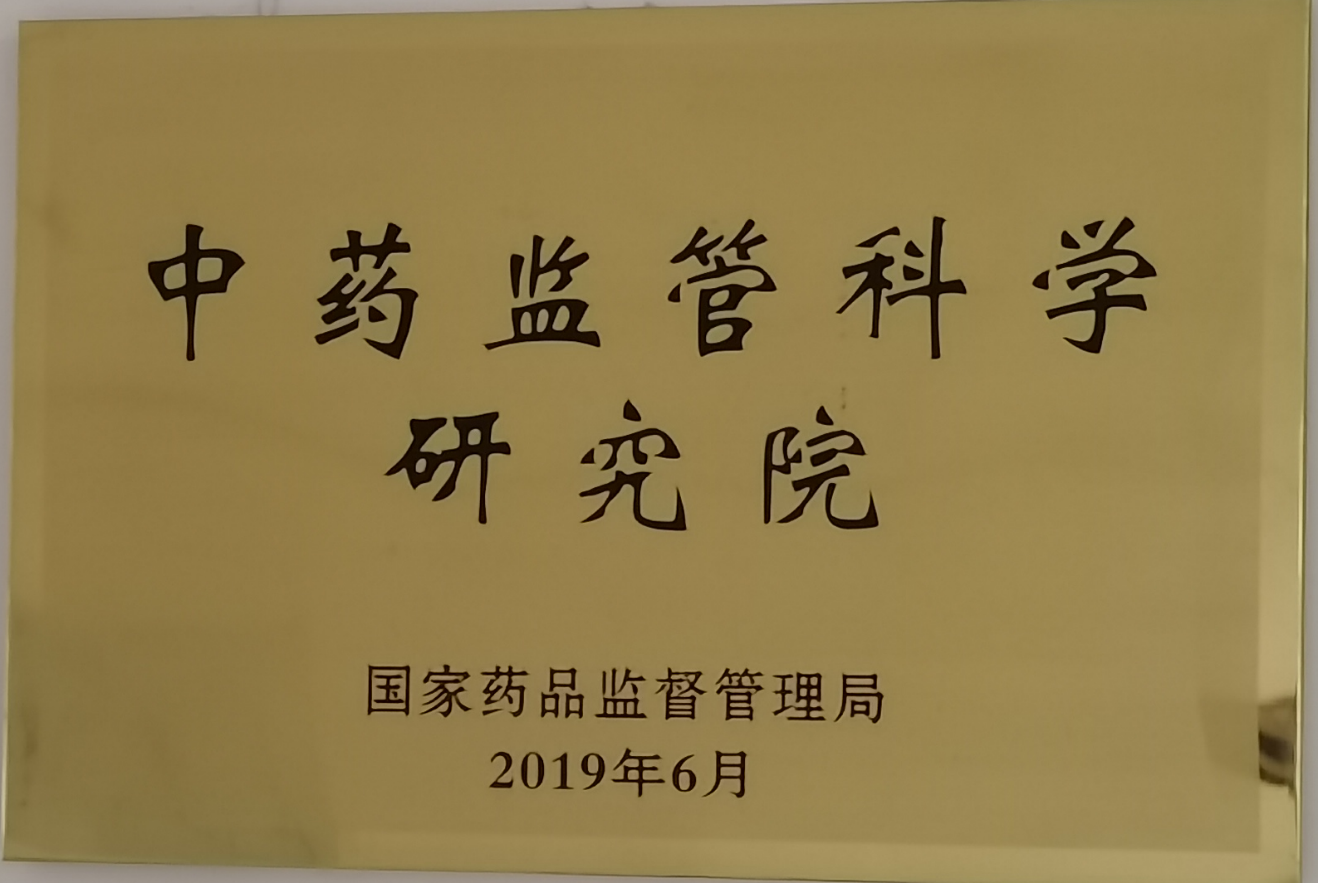 中药监管科学
研究院
国家药品监督管理局
2019年6月